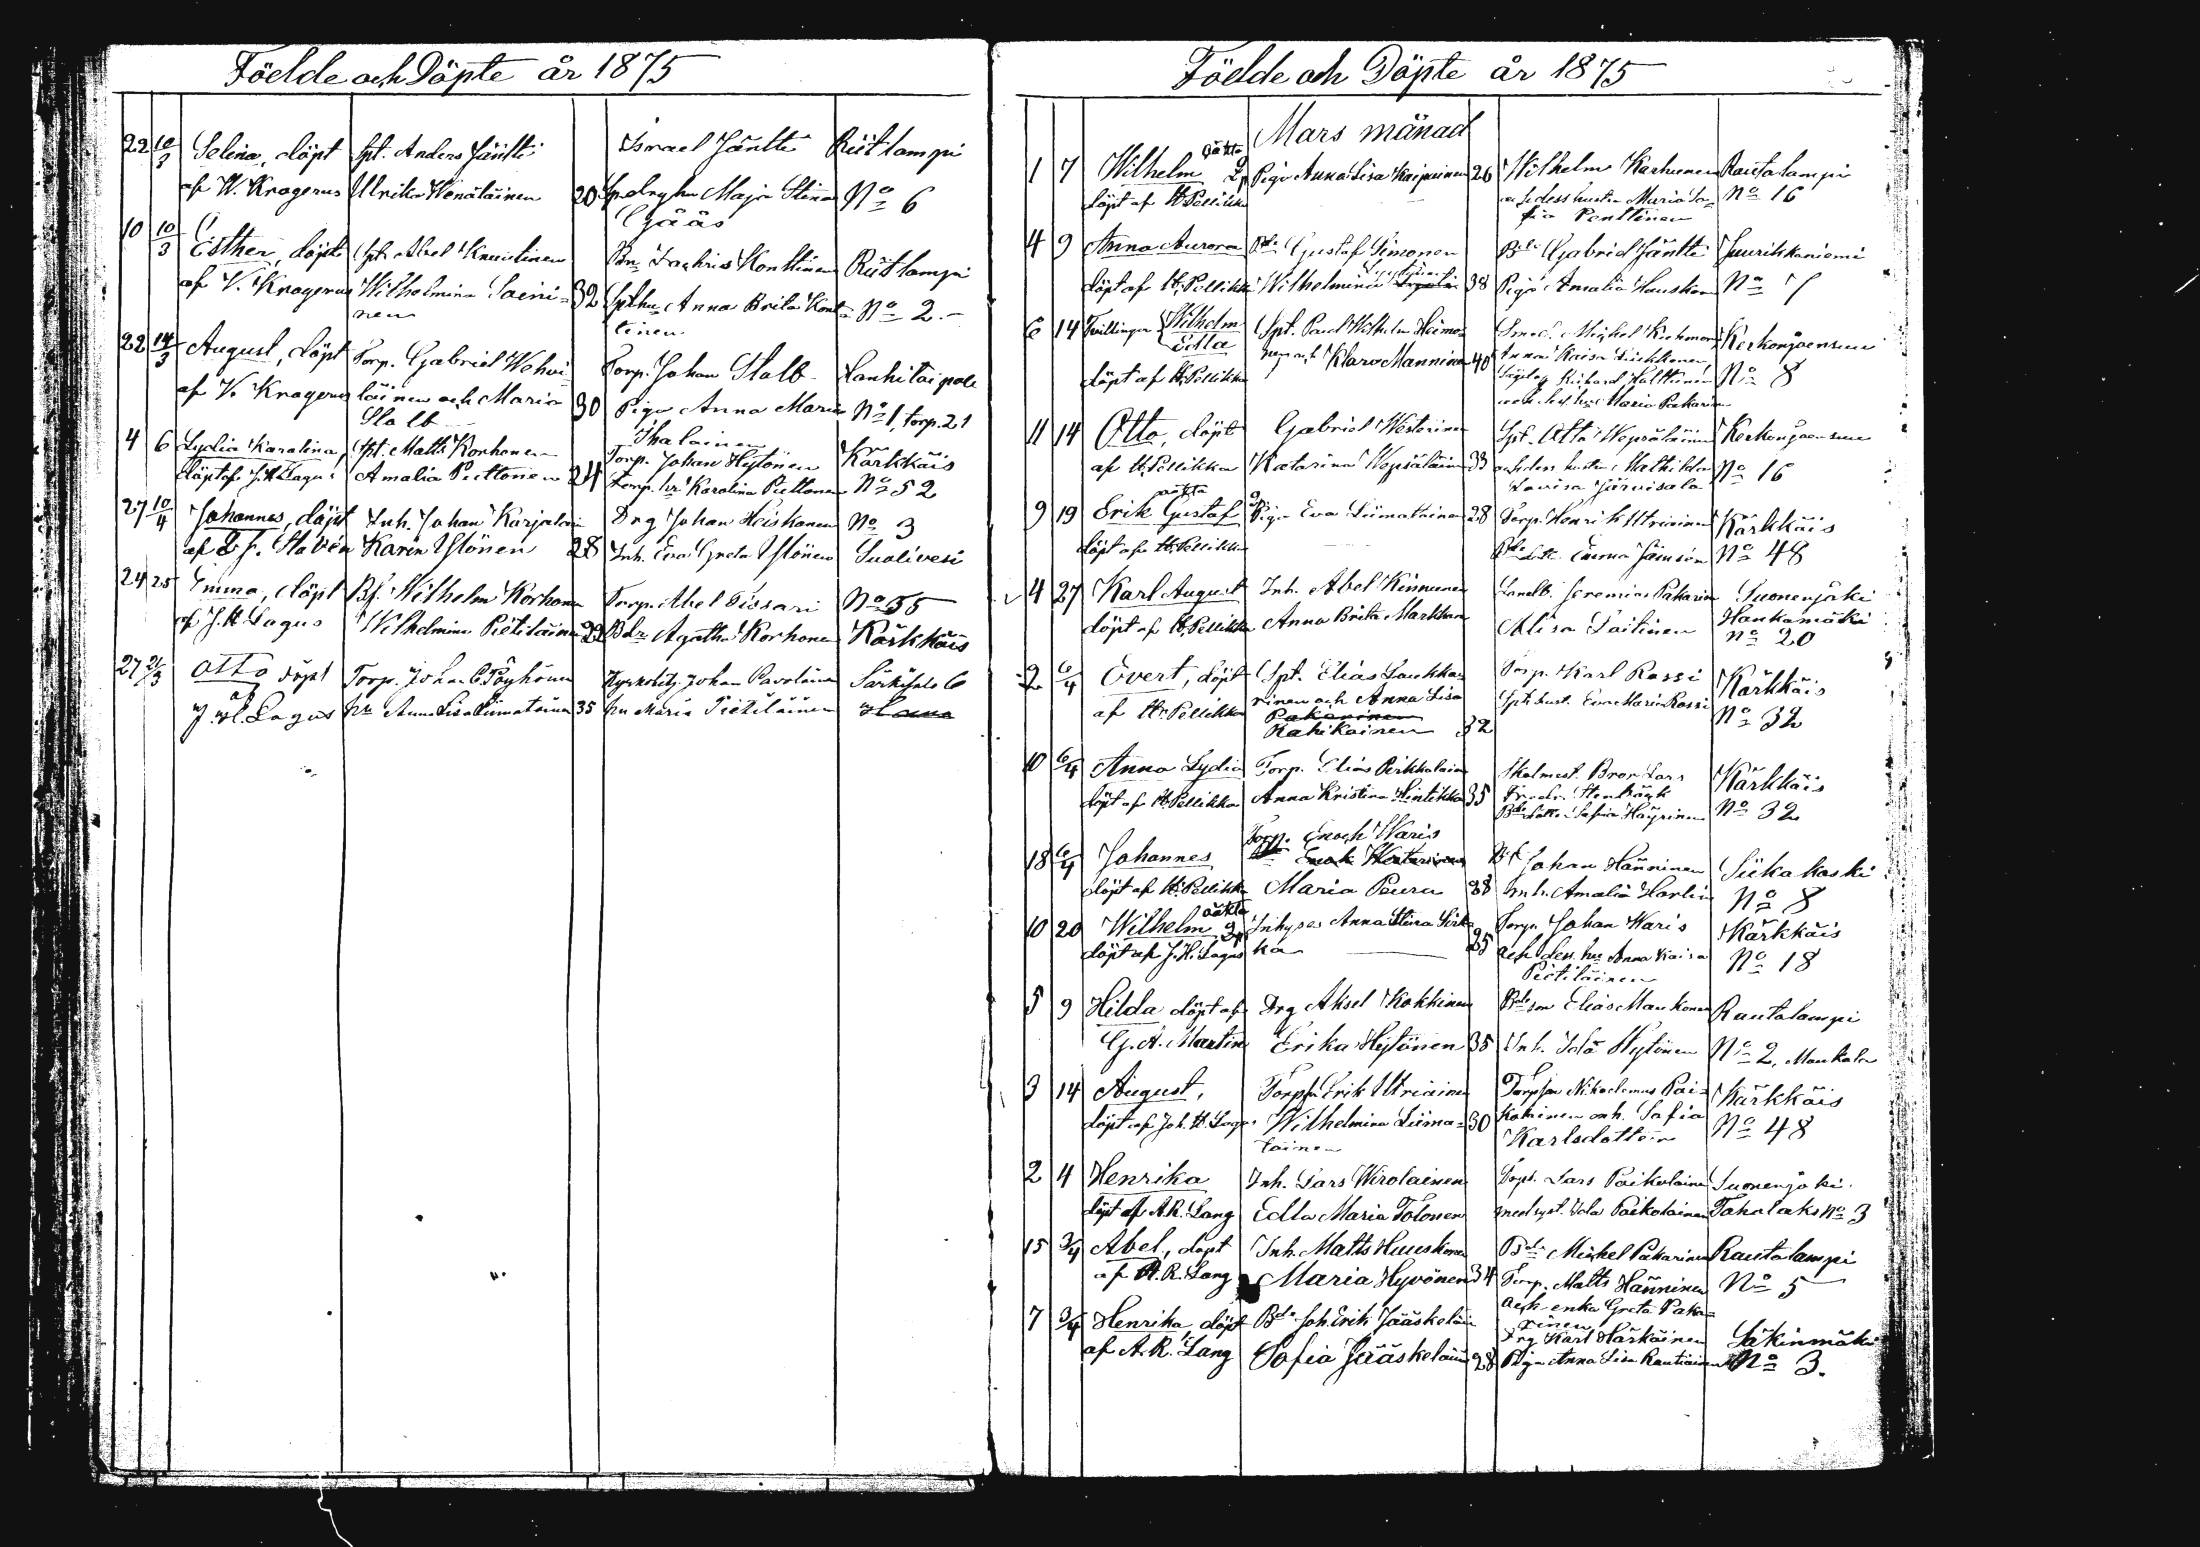 Föelde och Döpte år 1875
22 10/3 Selina, döpt Spt. Anders Jäntti Israel Jäntti Riitlampi
af V. Krogerus Ulrika Wenäläinen 20 Maja Stina No 6
Gåås
10 10/3 Esther, döpt Spt. Abel Knuutinen Bn Zachris Konttinen Riitlampi
af V. Krogerus Wilhelmina Saini= 32 Spt.hu Anna Brita Kont= No 2.-
nen tinen
22 14/3 August, döpt Torp. Gabriel Wehvi= Torp. Johan Stolb Hanhitaipale
af V. Krogerus läinen och Maria 30 Piga Anna Maria No 1, torp. 21
Stolb Ihalainen
4 6 Lydia Karolina, Spt. Matts Korhonen Torp. Johan Hytönen Kärkkäis
döpt af J. H. Lagus Amalia Piettonen 24 Torp. hu Karolina Piettonen No 52
27 10/4 Johannes, döpt Inh. Johan Karjalain Drg Johan Heiskanen No 3
af Karin Ylönen 28 Inh. Eva Greta Ylönen Suolivesi
24 25 Emma, döpt Bf. Wilhelm Korhonen Torp. Abel Tissari No 55
af J. H. Lagus Wilhelmina Pietiläinen 22 Agatha Korhonen Kärkkäis
27 21/3 Otto döpt Torp. Johan Töyhönen Johan Pavolainen Särkisalo 6
af
J. H. Lagus hu Anna Lisa Liimatainen 35 hu Maria Pietiläinen
Föelde och Döpte år 1875
Mars månad
oäkta
1 7 Wilhelm Piga Anna Lisa Kaipainen 26 Wilhelm Karhunen Rautalampi
döpt af H. Pellikka och dess hustru Maria So= No 16
fia Penttinen
4 9 Anna Aurora Bde Gustaf Simonen Bde Gabriel Jäntti Juurikkaniemi
döpt af H. Pellikka Wilhelmina 38 Piga Amalia Hauskonen No 7
6 14 Tvillingar Wilhelm Spt. Paul Wilhelm Heimo= Smed. Michel Kerkonjoensuu
Edla nen och Klara Manninen 40 Anna Kaisa Liukkonen
döpt af H. Pellikka Rickard Halttunen No 8
och Maria Pakarinen
11 14 Otto, döpt Gabriel Westerinen Spt. Otto Wepsäläinen Kerkonjoensuu
af H. Pellikka Katarina Wepsäläinen 33 och dess hustru Mathilda No 16
Lovisa Järvisalo
oäkta
9 19 Erik Gustaf Piga Eva Liimatainen 28 Torp. Henrik Utriainen Kärkkäis
döpt af H. Pellikka Emma Jämsén No 48
4 27 Karl August Inh. Abel Kinnunen Landb. Jeremias Pakarinen Suonenjoki
döpt af H. Pellikka Anna Brita Markkanen Alisa Laitinen Haukamäki
No 20
2 6/4 Evert, döpt Spt. Elias Laukka= Torp. Karl Rossi Kärkkäis
af H. Pellikka rinen och Anna Lisa Spt. hust. Eva Maria Rossi No 32
Pakarinen
Rahikainen 32
10 6/4 Anna Lydia Torp. Elias Pirkkalain Skolmest. Bror Lars Kärkkäis
döpt af H. Pellikka Anna Kristina Hintikka 35 Stenbäck
Sofia Häyrinen No 32
Torp. Enoch Waris
18 6/4 Johannes Bf Johan Hänninen Siikakoski
döpt af H. Pellikka Maria Peura 38 Inh. Amalia Harlin No 8
oäkta
10 20 Wilhelm Inhyses Anna Stina Sirk Torp. Johan Waris Kärkkäis
döpt af J. H. Lagus ka 25 och dess hu Anna Kaisa No 18
Pietiläinen
5 9 Hilda döpt af Drg Aksel Kokkinen Bdeson Elias Maukonen Rautalampi
G. A. Martin Erika Hytönen 35 Inh. Ida Hytönen No 2, Maukola
3 14 August, Torpson Erik Utriainen Torpson Nikodemus Pai= Kärkkäis
döpt af Joh. H. Lagus Wilhelmina Liima= 30 kkinen och Sofia No 48
tainen Karlsdotter
2 4 Henrika Inh. Lars Wirolainen Torp. Lars Paikolainen Suonenjoki.
döpt af A. R. Lang Edla Maria Tolonen med syst. Ida Paikolainen Toholaks No 3
15 3/4 Abel, döpt Inh. Matts Huuskonen Bde Michel Pakarinen Rautalampi
af A. R. Lang Maria Hyvönen 34 Torp. Matts Hänninen No 5
och enka Greta Paka=
rinen
7 3/4 Henrika döpt Bde Joh. Erik Jääskeläin Drg Karl Härkäinen Säkinmäki
af A. R. Lang Sofia Jääskeläinen 28 Piga Anna Lisa Rautiainen No 3.